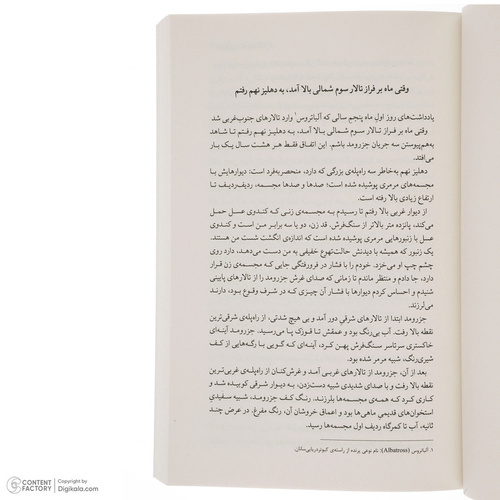 وقتی ماه بر فراز تالار سوم شمالی بالا آمد، به دهلیز نهم رفتم
یادداشت‌های روز اول ماه پنجم سالی که آلباتروس۱ وارد تالارهای جنوب‌غربی شد
وقتی ماه بر فراز تالار سوم شمالی بالا آمد، به دهلیز نهم رفتم تا شاهد
به‌هم‌پیوستن سه جریان جزرومد باشم. این اتفاق فقط هر هشت سال یک بار
می‌افتد.
دهلیز نهم به‌خاطر سه راه‌پله‌ی بزرگی که دارد، منحصربه‌فرد است: دیوارهایش با
مجسمه‌های مرمری پوشیده شده است؛ صدها و صدها مجسمه، ردیف‌ردیف تا
ارتفاع زیادی بالا رفته است.
از دیوار غربی بالا رفتم تا رسیدم به مجسمه‌ی زنی که کندوی عسل حمل
می‌کند، پانزده متر بالاتر از سنگ‌فرش. قد زن، دو یا سه برابر من است و کندوی
عسل با زنبورهایی مرمری پوشیده شده است که اندازه‌ی انگشت شست من هستند.
یک زنبور که همیشه با دیدنش حالت‌تهوع خفیفی به من دست می‌دهد، دارد روی
چشم چپ او می‌خزد. خودم را با فشار در فرورفتگی جایی که مجسمه‌ی زن قرار
دارد، جا دادم و منتظر ماندم تا زمانی که صدای غرش جزرومد را از تالارهای پایینی
شنیدم و احساس کردم دیوارها با فشار آن چیزی که در شرف وقوع بود، دارند
می‌لرزند.
جزرومد ابتدا از تالارهای شرقی دور آمد و بی هیچ شدتی، از راه‌پله‌ی شرقی‌ترین
نقطه بالا رفت. آب بی‌رنگ بود و عمقش تا قوزک پا می‌رسید. جزرومد آینه‌ای
خاکستری سرتاسر سنگ‌فرش پهن کرد، آینه‌ای که گویی با رگه‌هایی از کف
شیری‌رنگ، شبیه مرمر شده بود.
بعد از آن، جزرومد از تالارهای غربی آمد و غرش‌کنان از راه‌پله‌ی غربی‌ترین
نقطه بالا رفت و با صدای شدیدی شبیه دست‌زدن، به دیوار شرقی کوبیده شد و
کاری کرد که همه‌ی مجسمه‌ها بلرزند. رنگ کف جزرومد، شبیه سفیدیِ
استخوان‌های قدیمیِ ماهی‌ها بود و اعماق خروشان آن، رنگ مفرغ. در عرض چند
ثانیه، آب تا کمرگاه ردیف اول مجسمه‌ها رسید.
۱. آلباتروس (Albatross): نام نوعی پرنده از راسته‌ی کبوتردریایی‌سانان.
CONTENT FACTORY
Copyright©
Digikala.com